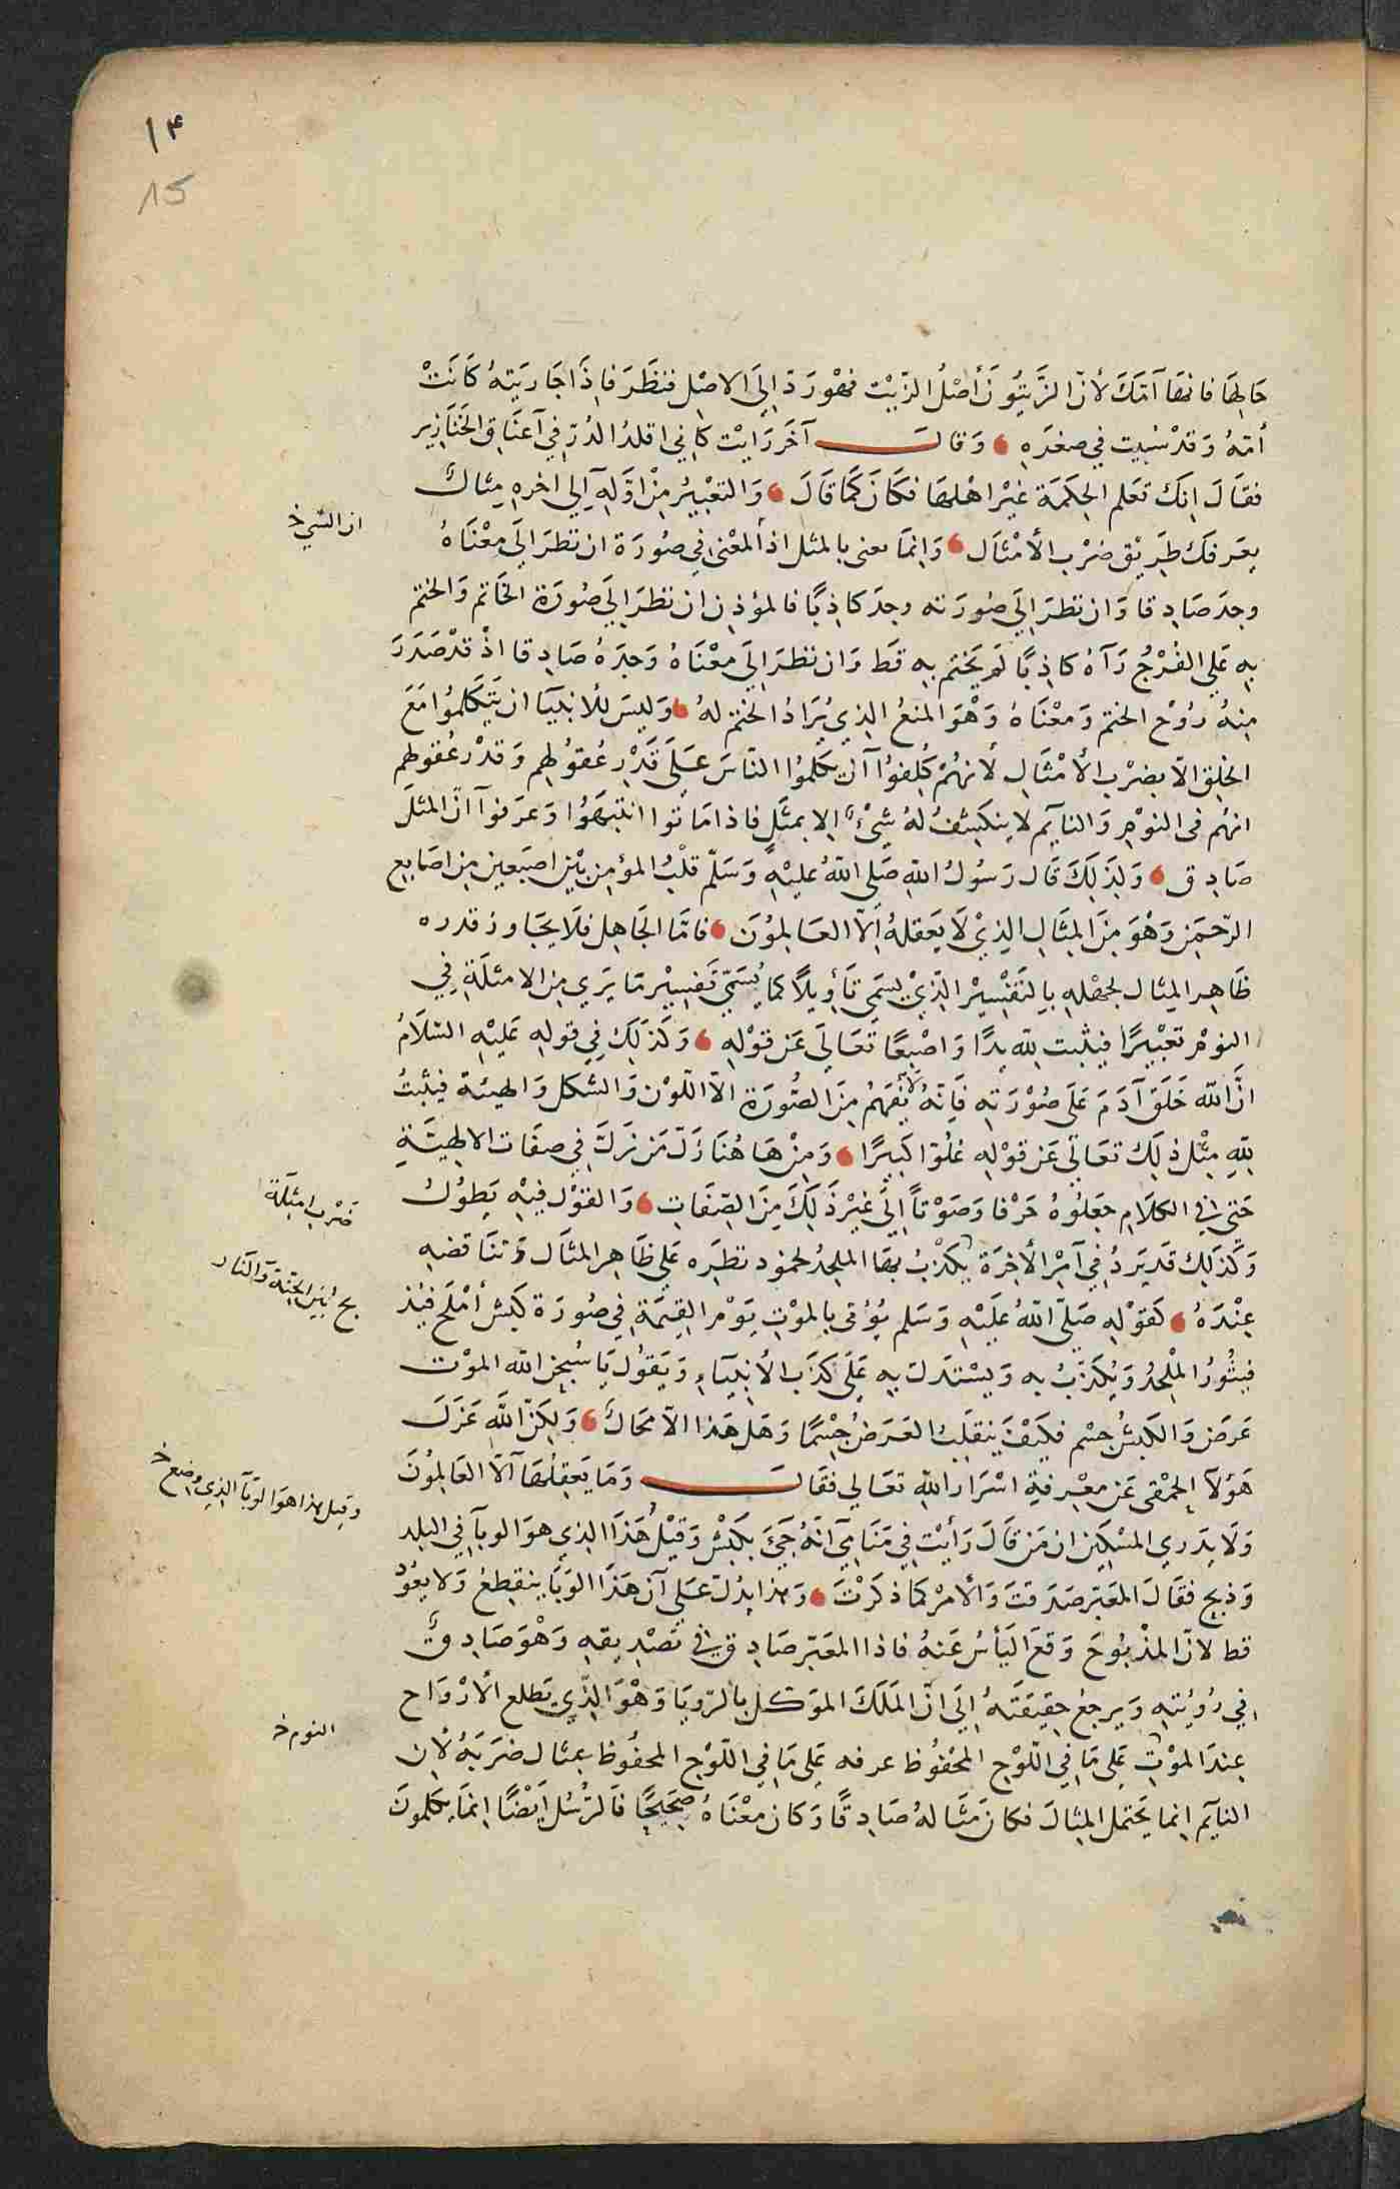 ١٤
15
حَالِهَا فانهَا اَمّكَ لأنّ الزَّيتُونَ أصْلُ الزّيْت فهْوَ رَدّ اِلَى الاصْل فنظَرَ فاِذَا جَاريَتهُ كَانَتْ
أمّهُ وَقدْ سُبِيت في صغرَهِ وَقالَ آخَر رَايْت كاني اقلدُ الدُرّ في اَعنَاقِ الخَنَازير
فقَالَ اِنكَ تعَلم الحِكمَة غيْرَ اهْلهَا فكَانَ كَمَا قَالَ وَالتعْبيْرُ مِنْ اوَّلهِ اِلى اخرهِ مِثالٌ
يعَرفكَ طَريْق ضَرْب الأمْثَال وَانمَا نعنى بالمثل اَدأ المعْنى في صُورَة ان نظرَ الَى مَعْنَاهُ
وجدَ صَادِقا وَان نظرَ اِلَى صُورَته وجدَ كاذِبًا فالمؤذن ان نظرَ اِلَى صُورَة الخَاتم وَالختم
بهِ عَلى الفُرْجُ رَآهُ كاذِبًا لم يَختم بهِ قَط وَان نظرَ اِلَى مَعْنَاهُ وَجدَهُ صَادِقا اذْ قدْ صَدَرَ
مِنهُ رُوْح الختم وَمعْنَاهُ وَهْوَ المنعُ الذِي يُرَادُ الختم لهُ وَليسَ للأنبيَا ان يَتَكلمُوا مَعَ
الخلق الاّ بضَرْب الأمْثَالِ لأنهُمْ كُلِفوُا اَن يكَلموُا النّاسَ عَلَى قَدْرِ عُقوُلهِم وَقدْر عُقولهم
انهُم فى النوْم وَالنايَم لا ينكَشفُ لهُ شَيْءٌ اِلا بمثَلٍ فاذا مَاتوا انتبَهَوُا وَعرَفوا اَنّ المثلَ
صَادِق وَلذِلكَ قَال رَسُولُ اللهِ صَلى اللهُ عليْهِ وَسَلّم قلْبُ المؤمِن بَيْن اصبَعين مِن اصَابع
الرّحمَن وَهْوَ مِنَ المِثَالِ الذِيْ لَا يَعَقلهُ اِلّا العَالِموُنَ فَامَّا الجَاهِل فلَا يجَاوز قدره
ظَاهِر المِثال لجهْلهِ بالتَفْسِيْر الذّيْ يسَمي تَأويلًا كما يُسَمّي تَفسِيْر مَا يَرى مِن الامثلَةِ في
النوْمِ تعَبْيرًا فيثْبت لِلهِ يدًا وَاصْبعًا تعَالَى عَن قوْلهِ وَكَذلِكَ في قولهِ عَليْهِ السّلَامُ
انَّ اللهَ خَلَقَ آدَمَ عَلَى صُوْرَتهِ فَاِنّهُ لا يَفهَمُ مِنَ الصُّورَة الاّ اللّوْن وَالشكل وَالهيئة فيثبتُ
لِلّهِ مِثْل ذلِكَ تعَالَى عَن قوْلهِ عُلوّا كَبيرًا وَمِنْ هَا هُنَا زَلّ مَن زَلَّ في صفَات الالهيَّةِ
حَتي في الكلَامِ جعَلوُهُ حَرْفا وَصَوْتاً اِلَى غيْرِ ذَلِكَ مِنَ الصِفَاتِ وَالقوْل فيْهِ يَطوُلُ
وَكَذلِكَ قدَ يَردُ في اَمْرِ الأخِرَة ضَرْب امْثِلَة يكَذْبُ بهَا الملحِدُ لجمُود نظَره عَلى ظَاهِر المثَال وَتنَاقضهِ
عِنْدَهُ كَقوْلهِ صَلّى اللهُ عَليْهِ وَسَلم يُؤتى بالموْتِ يَوْمَ القِيمَةِ في صُورَة كَبش أمْلَح فيُذ
فيثُورُ المْلِحدُ وَيُكذّبُ به وَيسْتدَلّ بهِ عَلَى كذَب الأنبيَاءِ وَيقوُل يَا سُبحن الله الموْت
عَرض وَالكَبشُ جسْم فكَيْفَ يَنقلَبُ العَرَضُ جِسْمًا وَهَل هَذا الاّ محَالٌ وَلكِنّ اللهَ عَزَل
هَؤلآ الحمْقى عَن معْرِفةِ اسْرَار اللهِ تعَالى فقَالَ وَمَا يَعقِلهَا اَلّا العَالِموُنَ
وَلَا يدَري المسْكين ان مَن قَالَ رَأيْت فِي مَنَامِي اَنّهُ جَيَ بكَبْش وَقيْل هَذَا الذِي هوَ الوبَا في البلد
وَذبح فقَالَ المعَبّر صَدَقتَ وَالأمْر كمَا ذكَرْتَ وَهذا يدُلّ عَلى اَن هَذَا الوَبَا ينقطع وَلا يعُوْد
قط لانّ المذْبوُحَ وَقعَ اليَأسُ عَنهُ فاذا المعَبّر صَادِق في تصْدِيقهِ وَهْوَ صَادِقٌ
في رُؤيتهِ وَيرجعُ حقِيقتَهُ اِلَى انّ المَلَكَ الموَكل بالرّويَا وَهْوَ الذّي يَطلع الأرْوَاح
عِندَ الموْتِ عَلى مَا في اللّوْحِ المحْفُوظ عرفه عَلى مَا في اللّوْح المحفُوظ بمثال ضَرَبَهُ لأن
النايَم اِنما يحَتمل المِثالَ فكانَ مثَالهُ صَادِقًا وَكان معْنَاهُ صَحِيحًا فَالرُّسُل أيْضًا اِنمَا يكَلموُنَ
ان الشي خ
ضَرْب امثِلَة
بح بَيْنَ الجنّة وَالنّار
وقيل هذا هوَ الوبَآ الذي وضع خ
النوم خ